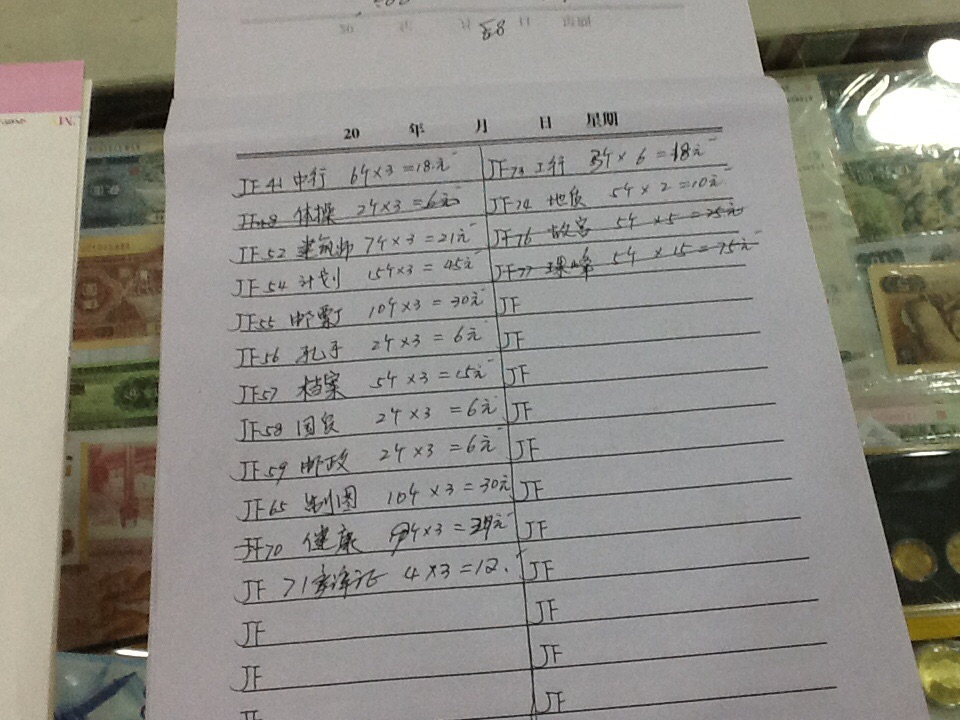 20 年 月 日 星期
JF41 中行 6个×3=18元
JF48 体操 2个×3=6元
JF52 建筑师 7个×3=21元
JF54 计划 15个×3=45元
JF55 邮票 10个×3=30元
JF56 孔子 2个×3=6元
JF57 档案 5个×3=15元
JF58 国食 2个×3=6元
JF59 邮政 2个×3=6元
JF65 制图 10个×3=30元
JF70 健康 ×3=
JF 71 4×3=12.
JF
JF
JF
JF73 工行 3个×6=18元
JF74 地质 5个×2=10元
JF76 故宫 5个×5=25元
JF77 珠峰 5个×15=75元
JF
JF
JF
JF
JF
JF
JF
JF
JF
JF
JF